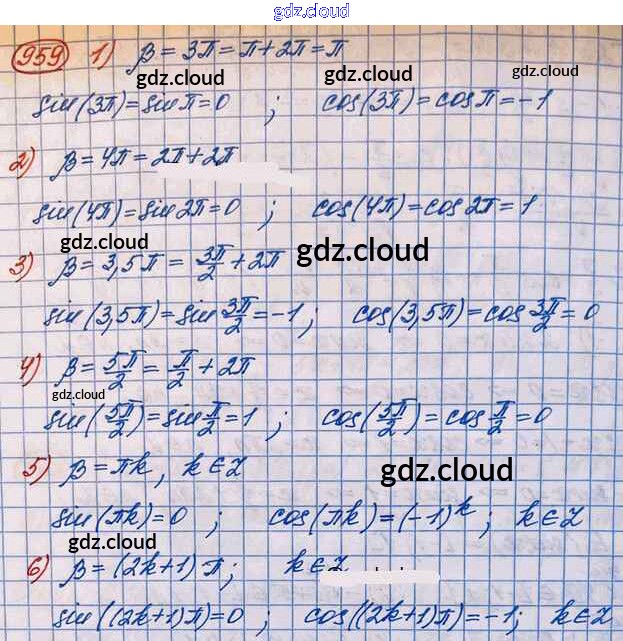 gdz.cloud
959 1) β = 3π = π + 2π = π
gdz.cloud gdz.cloud gdz.cloud
sin(3π) = sin π = 0 ; cos(3π) = cos π = -1
2) β = 4π = 2π + 2π
sin(4π) = sin 2π = 0 ; cos(4π) = cos 2π = 1
gdz.cloud gdz.cloud
3) β = 3,5π = 3π/2 + 2π
sin(3,5π) = sin 3π/2 = -1 ; cos(3,5π) = cos 3π/2 = 0
4) β = 5π/2 = π/2 + 2π
gdz.cloud
sin(5π/2) = sin π/2 = 1 ; cos(5π/2) = cos π/2 = 0
5) β = πk, k ∈ Z
gdz.cloud
sin(πk) = 0 ; cos(πk) = (-1)^k ; k ∈ Z
gdz.cloud
6) β = (2k+1)π ; k ∈ Z
sin((2k+1)π) = 0 ; cos((2k+1)π) = -1 ; k ∈ Z
gdz.cloud